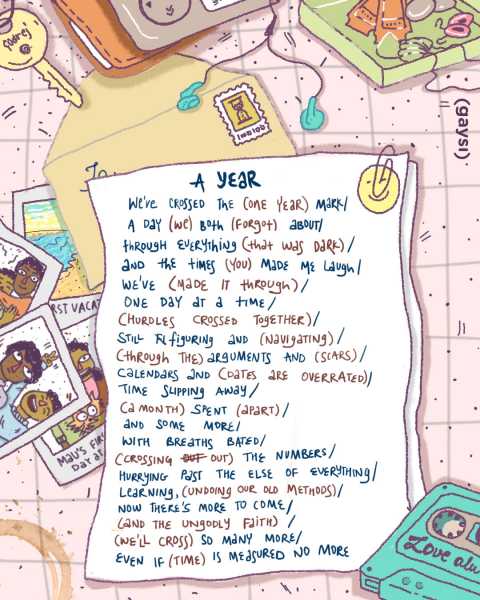 (gaysi)
A YEAR
We've CROSSED THE (ONE YEAR) MARK/
A DAY (We) BOTH (FORGOT) ABOUT/
through EVERYTHING (that WAS DARK)/
and the times (YOU) MADE ME LAUGH/
WE'VE (MADE IT through)/
ONE DAY at a time/
(HURDLES CROSSED TOGETHER)/
STILL FIGURING and (NAVIGATING)/
(through THE) ARGUMENTS AND (SCARS)/
CALENDARS and (DATES ARE OVERRATED)/
TIME SLIPPING AWAY/
(a MONTH) SPENT (APART)/
AND SOME MORE/
WITH BREATHS BATED/
(CROSSING OUT OUT) THE NUMBERS/
HURRYING PAST THE ELSE OF EVERYTHING/
LEARNING, (UNDOING OUR OLD METHODS)/
NOW THERE'S MORE TO COME/
(AND THE UNGODLY FAITH) /
(WE'LL CROSS) SO MANY MORE/
EVEN IF (TIME) IS MEASURED NO MORE
RST VACA
DAY AT
Love